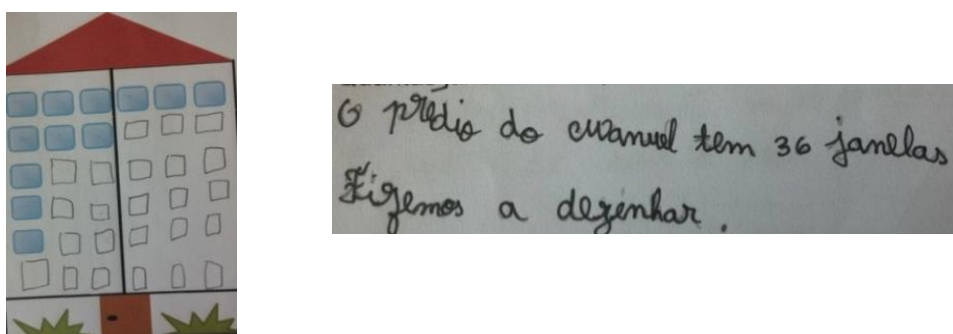 O prédio do Manuel tem 36 janelas
Fizemos a dezenhar.